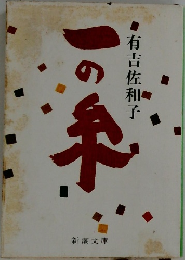 一の糸
有吉佐和子
新潮文庫